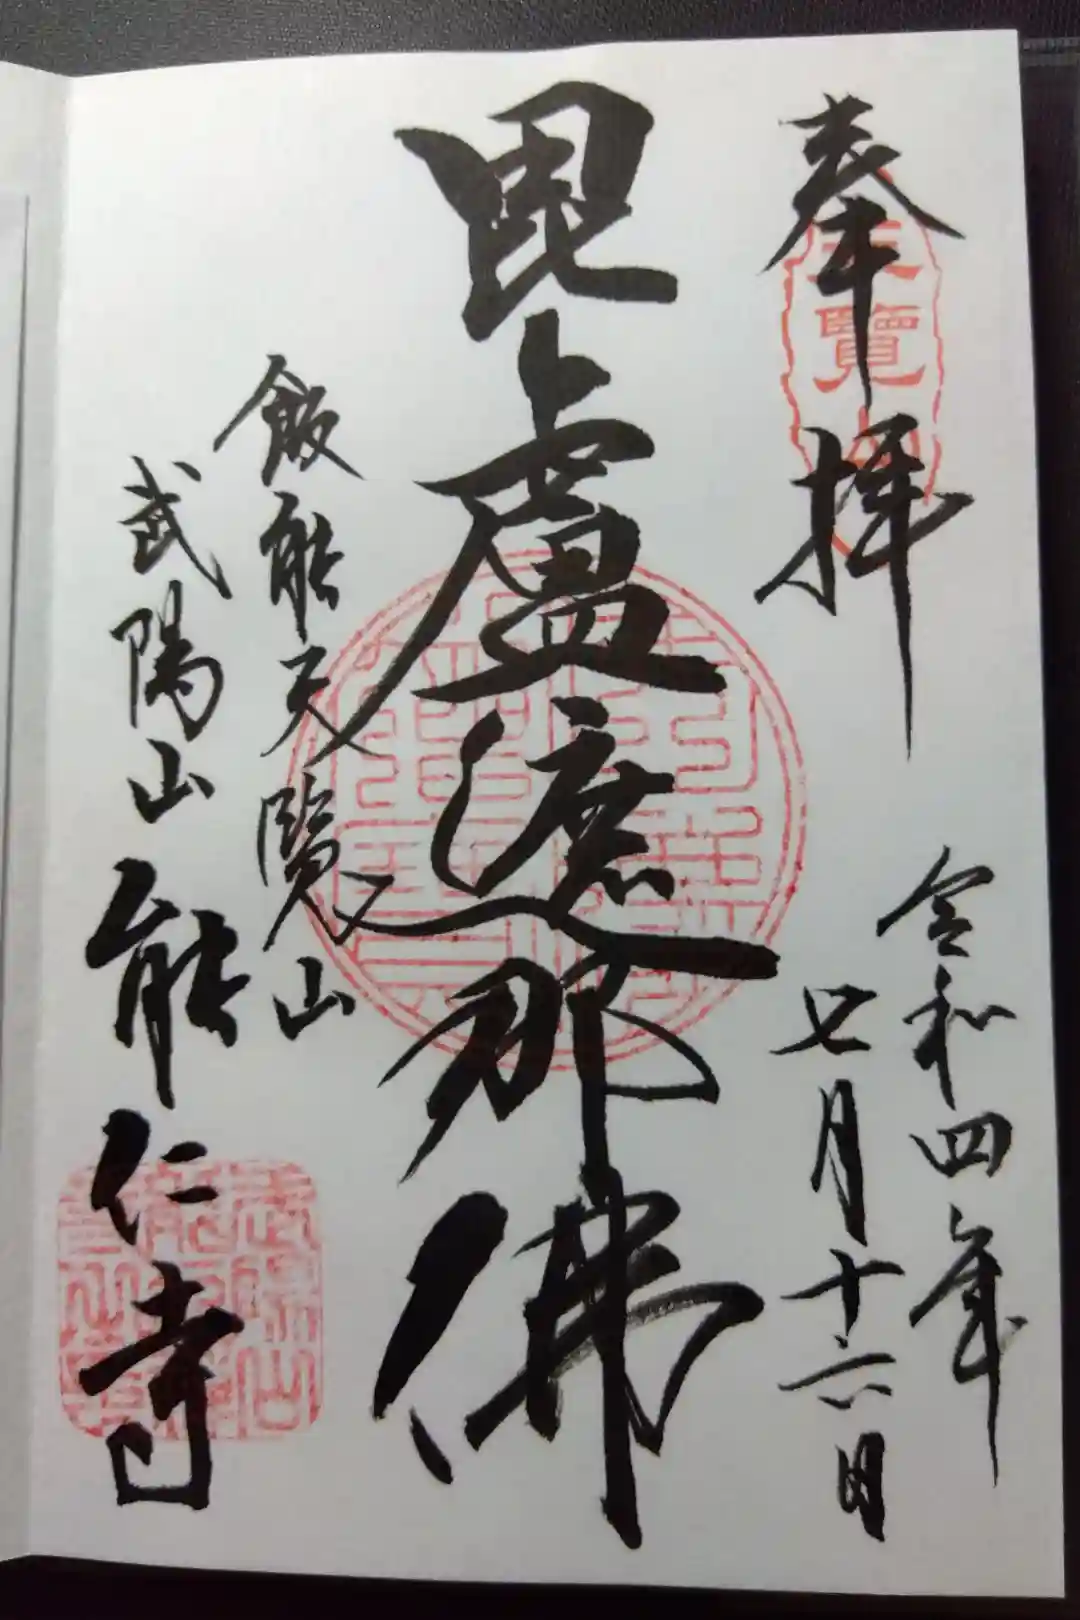 奉拝
天覧山
令和四年
七月十六日
毘盧遮那佛
飯能天覧山
武陽山能仁寺